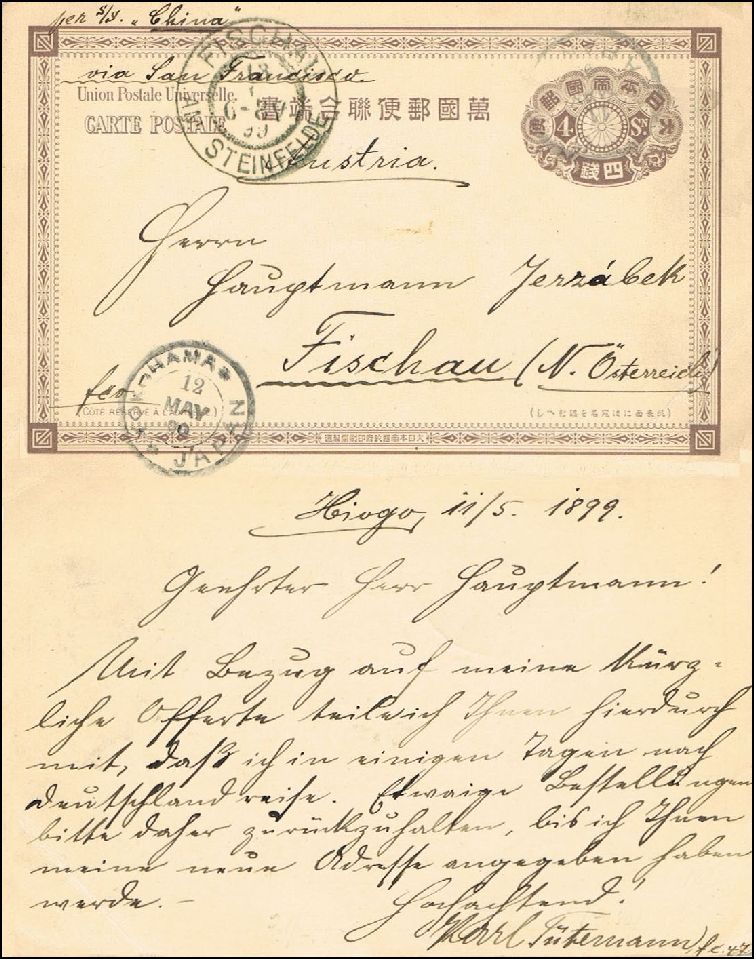 per S/S. „China"
via San Francisco
Union Postale Universelle
CARTE POSTALE
萬國郵便聯合端書
大日本帝國郵便
4 Sn.
四錢
FISCHAU
AM STEINFELDE
99
Austria.
Herrn
Hauptmann Jerzábek
Fischau (N. Österreich)
YOKOHAMA
12
MAY
99
JAPAN
(CÔTÉ RÉSERVÉ À L'ADRESSE)
大日本帝國政府印刷局製造
Hiogo, 11/5. 1899.
Geehrter Herr Hauptmann!
Mit Bezug auf meine kürz-
liche Offerte teile ich Ihnen hierdurch
mit, daß ich in einigen Tagen nach
Deutschland reise. Etwaige Bestellungen
bitte daher zurückzuhalten, bis ich Ihnen
meine neue Adresse angegeben haben
werde. –
Hochachtend!
Karl